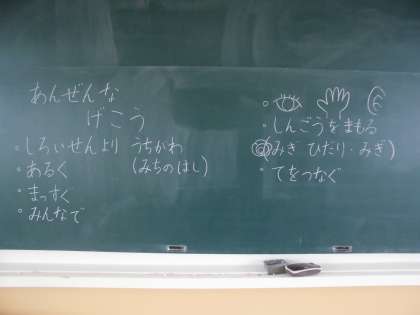 あんぜんな
げこう
・しろいせんより うちかわ
(みちのはし)
・あるく
・まっすぐ
・みんなで
・しんごうをまもる
みぎ ひだり・みぎ)
・てをつなぐ